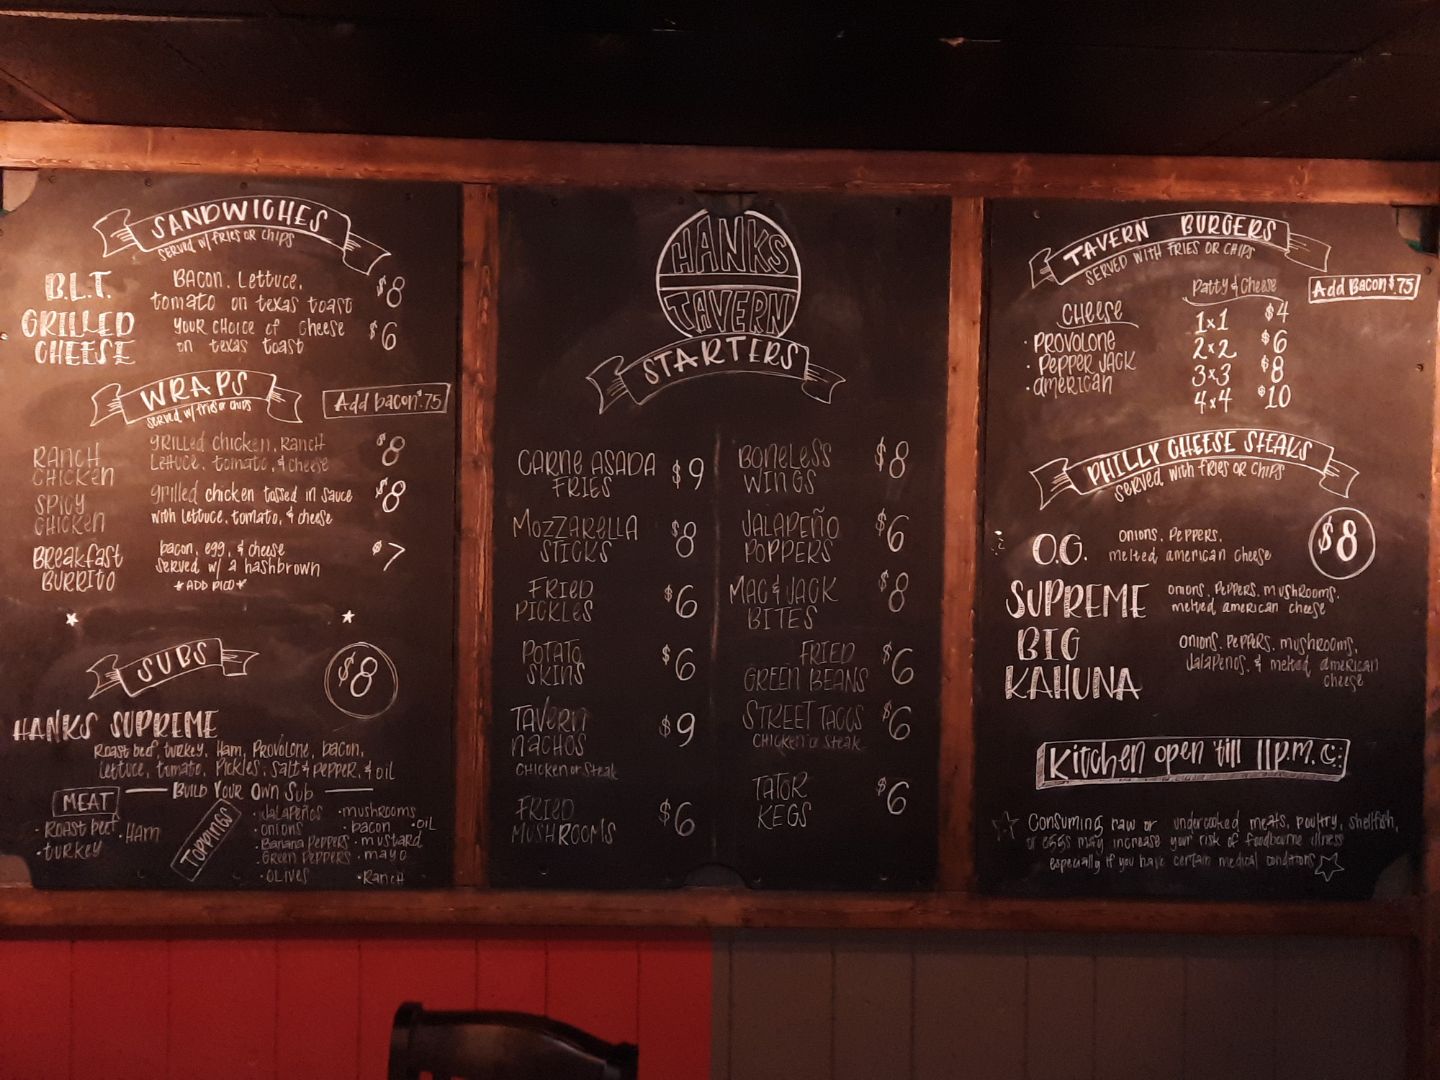 SANDWICHES
SERVED W/ FRIES OR CHIPS
B.L.T.
BACON, LETTUCE,
tomato on texas toast
$8
GRILLED
CHEESE
YOUR CHOICE OF cheese
on texas toast
$6
WRAPS
served w/ fries or chips
Add bacon $.75
RANCH
CHICKEN
GRILLED chicken, RANCH
Lettuce, tomato, & cheese
$8
SPICY
CHICKEN
grilled chicken tossed in sauce
with lettuce, tomato, & cheese
$8
Breakfast
BURRITO
bacon, egg, & cheese
served w/ a hashbrown
*ADD PICO*
$7
SUBS
$8
HANKS SUPREME
Roast beef, turkey, Ham, Provolone, bacon,
lettuce, tomato, Pickles, Salt & pepper, & oil
BUILD YOUR OWN SUB
MEAT
· Roast beef · Ham
· turkey
TOPPINGS
· JALAPEÑOS · mushrooms
· onions · bacon · OIL
· Banana Peppers · mustard
· Green Peppers · mayo
· OLIVES · RANCH
HANKS
TAVERN
STARTERS
CARNE ASADA
FRIES
$9
MOZZARELLA
STICKS
$8
FRIED
PICKLES
$6
POTATO
SKINS
$6
TAVERN
NACHOS
CHICKEN or Steak
$9
FRIED
MUSHROOMS
$6
BONELESS
WINGS
$8
JALAPEÑO
POPPERS
$6
MAC & JACK
BITES
$8
FRIED
GREEN BEANS
$6
STREET TACOS
CHICKEN or Steak
$6
TATOR
KEGS
$6
TAVERN BURGERS
SERVED WITH FRIES OR CHIPS
Patty & Cheese
Add Bacon $.75
CHEESE
· PROVOLONE
· PEPPER JACK
· american
1x1 $4
2x2 $6
3x3 $8
4x4 $10
PHILLY CHEESE STEAKS
served with fries or chips
$8
O.G.
onions, Peppers,
melted american cheese
SUPREME
onions, Peppers, mushrooms,
melted american cheese
BIG
KAHUNA
onions, Peppers, mushrooms,
Jalapenos, & melted american
cheese
Kitchen open 'till 11p.m.
Consuming raw or undercooked meats, poultry, shellfish,
or eggs may increase your risk of foodbourne illness
especially if you have certain medical conditions